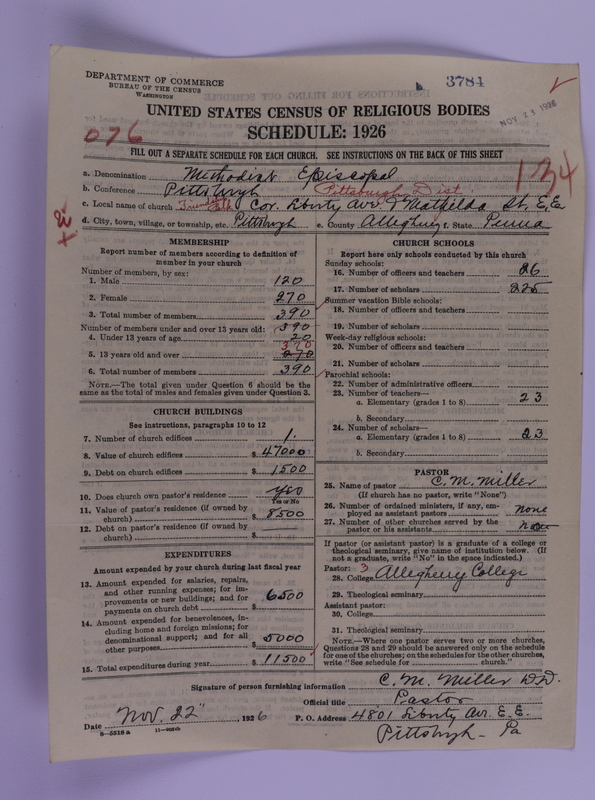 DEPARTMENT OF COMMERCE
BUREAU OF THE CENSUS
WASHINGTON
3784
NOV 23 1926
UNITED STATES CENSUS OF RELIGIOUS BODIES
SCHEDULE: 1926
076
FILL OUT A SEPARATE SCHEDULE FOR EACH CHURCH. SEE INSTRUCTIONS ON THE BACK OF THIS SHEET
134
a. Denomination Methodist Episcopal
b. Conference Pittsburgh Pittsburgh Dist
c. Local name of church Cor. Liberty Ave. & Mathilda St. E.E.
d. City, town, village, or township, etc. Pittsburgh e. County Allegheny f. State Penna
MEMBERSHIP
Report number of members according to definition of
member in your church
Number of members, by sex:
1. Male 120
2. Female 270
3. Total number of members 390
Number of members under and over 13 years old: 390
4. Under 13 years of age 20
370
5. 13 years old and over 270
6. Total number of members 390
NOTE.—The total given under Question 6 should be the
same as the total of males and females given under Question 3.
CHURCH BUILDINGS
See instructions, paragraphs 10 to 12
7. Number of church edifices 1.
8. Value of church edifices $ 47000
9. Debt on church edifices $ 1500
10. Does church own pastor's residence yes
Yes or No
11. Value of pastor's residence (if owned by
church) $ 8500
12. Debt on pastor's residence (if owned by
church) $ —
EXPENDITURES
Amount expended by your church during last fiscal year
13. Amount expended for salaries, repairs,
and other running expenses; for im-
provements or new buildings; and for
payments on church debt $ 6500
14. Amount expended for benevolences, in-
cluding home and foreign missions; for
denominational support; and for all
other purposes $ 5000
15. Total expenditures during year $ 11500
CHURCH SCHOOLS
Report here only schools conducted by this church
Sunday schools:
16. Number of officers and teachers 26
17. Number of scholars 225
Summer vacation Bible schools:
18. Number of officers and teachers
19. Number of scholars
Week-day religious schools:
20. Number of officers and teachers
21. Number of scholars
Parochial schools:
22. Number of administrative officers
23. Number of teachers—
a. Elementary (grades 1 to 8) 23
b. Secondary
24. Number of scholars—
a. Elementary (grades 1 to 8) 23
b. Secondary
PASTOR
25. Name of pastor C. M. Miller
(If church has no pastor, write "None")
26. Number of ordained ministers, if any, em-
ployed as assistant pastors none
27. Number of other churches served by the
pastor or his assistants
If pastor (or assistant pastor) is a graduate of a college or
theological seminary, give name of institution below. (If
not a graduate, write "No" in the space indicated.)
Pastor: 3
28. College Allegheny College
29. Theological seminary
Assistant pastor:
30. College
31. Theological seminary
NOTE.—Where one pastor serves two or more churches,
Questions 28 and 29 should be answered only on the schedule
for one of the churches; on the schedules for the other churches,
write "See schedule for church."
Signature of person furnishing information C. M. Miller D.D.
Official title Pastor
Date Nov. 22", 1926 P. O. Address 4801 Liberty Ave. E.E.
8—5518 a
Pittsburgh - Pa